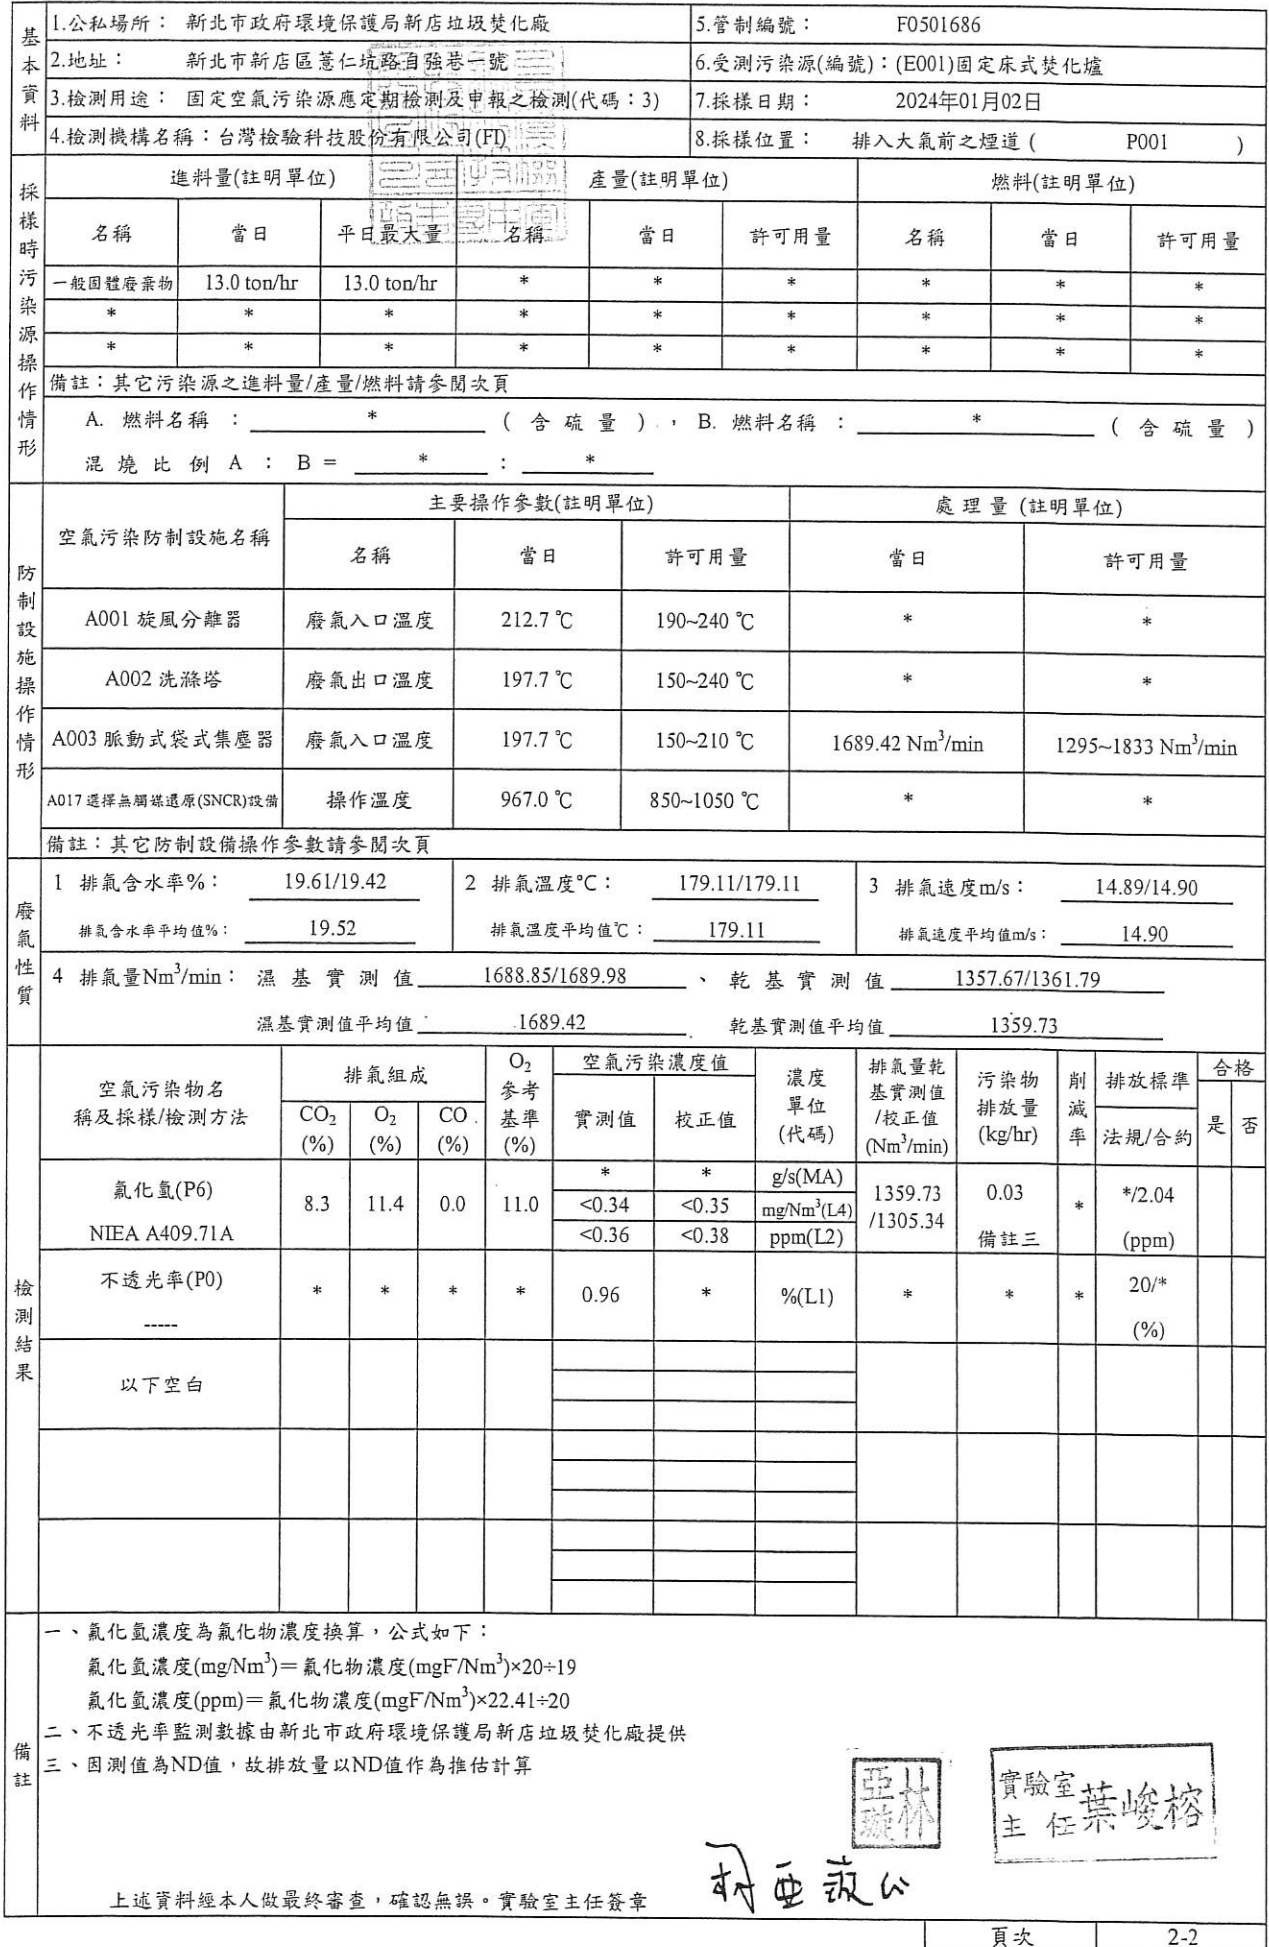 基本資料
1.公私場所： 新北市政府環境保護局新店垃圾焚化廠 5.管制編號： F0501686
2.地址： 新北市新店區薏仁坑路自強巷一號 6.受測污染源(編號)：(E001)固定床式焚化爐
3.檢測用途： 固定空氣污染源應定期檢測及申報之檢測(代碼：3) 7.採樣日期： 2024年01月02日
4.檢測機構名稱：台灣檢驗科技股份有限公司(FI) 8.採樣位置： 排入大氣前之煙道 ( P001 )
採樣時污染源操作情形
進料量(註明單位) 產量(註明單位) 燃料(註明單位)
名稱 當日 平日最大量 名稱 當日 許可用量 名稱 當日 許可用量
一般固體廢棄物 13.0 ton/hr 13.0 ton/hr * * * * * *
* * * * * * * * *
* * * * * * * * *
備註：其它污染源之進料量/產量/燃料請參閱次頁
A. 燃料名稱 ： * ( 含硫量 )，B. 燃料名稱 ： * ( 含硫量 )
混燒比例 A ： B = * ： *
防制設施操作情形
空氣污染防制設施名稱 主要操作參數(註明單位) 處理量 (註明單位)
名稱 當日 許可用量 當日 許可用量
A001 旋風分離器 廢氣入口溫度 212.7 ℃ 190~240 ℃ * *
A002 洗滌塔 廢氣出口溫度 197.7 ℃ 150~240 ℃ * *
A003 脈動式袋式集塵器 廢氣入口溫度 197.7 ℃ 150~210 ℃ 1689.42 Nm³/min 1295~1833 Nm³/min
A017 選擇無觸媒還原(SNCR)設備 操作溫度 967.0 ℃ 850~1050 ℃ * *
備註：其它防制設備操作參數請參閱次頁
廢氣性質
1 排氣含水率%： 19.61/19.42 2 排氣溫度°C： 179.11/179.11 3 排氣速度m/s： 14.89/14.90
排氣含水率平均值%： 19.52 排氣溫度平均值℃： 179.11 排氣速度平均值m/s： 14.90
4 排氣量Nm³/min： 濕基實測值 1688.85/1689.98 、 乾基實測值 1357.67/1361.79
濕基實測值平均值 1689.42 乾基實測值平均值 1359.73
檢測結果
空氣污染物名稱及採樣/檢測方法 排氣組成 O₂參考基準(%) 空氣污染濃度值 濃度單位(代碼) 排氣量乾基實測值/校正值(Nm³/min) 污染物排放量(kg/hr) 削減率 排放標準 合格
CO₂(%) O₂(%) CO(%) 實測值 校正值 法規/合約 是 否
氟化氫(P6) NIEA A409.71A 8.3 11.4 0.0 11.0 * * g/s(MA) 1359.73/1305.34 0.03 備註三 * */2.04 (ppm)
<0.34 <0.35 mg/Nm³(L4)
<0.36 <0.38 ppm(L2)
不透光率(P0) ----- * * * * 0.96 * %(L1) * * * 20/* (%)
以下空白
備註
一、氟化氫濃度為氟化物濃度換算，公式如下：
氟化氫濃度(mg/Nm³)＝氟化物濃度(mgF⁻/Nm³)×20÷19
氟化氫濃度(ppm)＝氟化物濃度(mgF⁻/Nm³)×22.41÷20
二、不透光率監測數據由新北市政府環境保護局新店垃圾焚化廠提供
三、因測值為ND值，故排放量以ND值作為推估計算
林亞璇
實驗室主任葉峻榕
上述資料經本人做最終審查，確認無誤。實驗室主任簽章
頁次 2-2